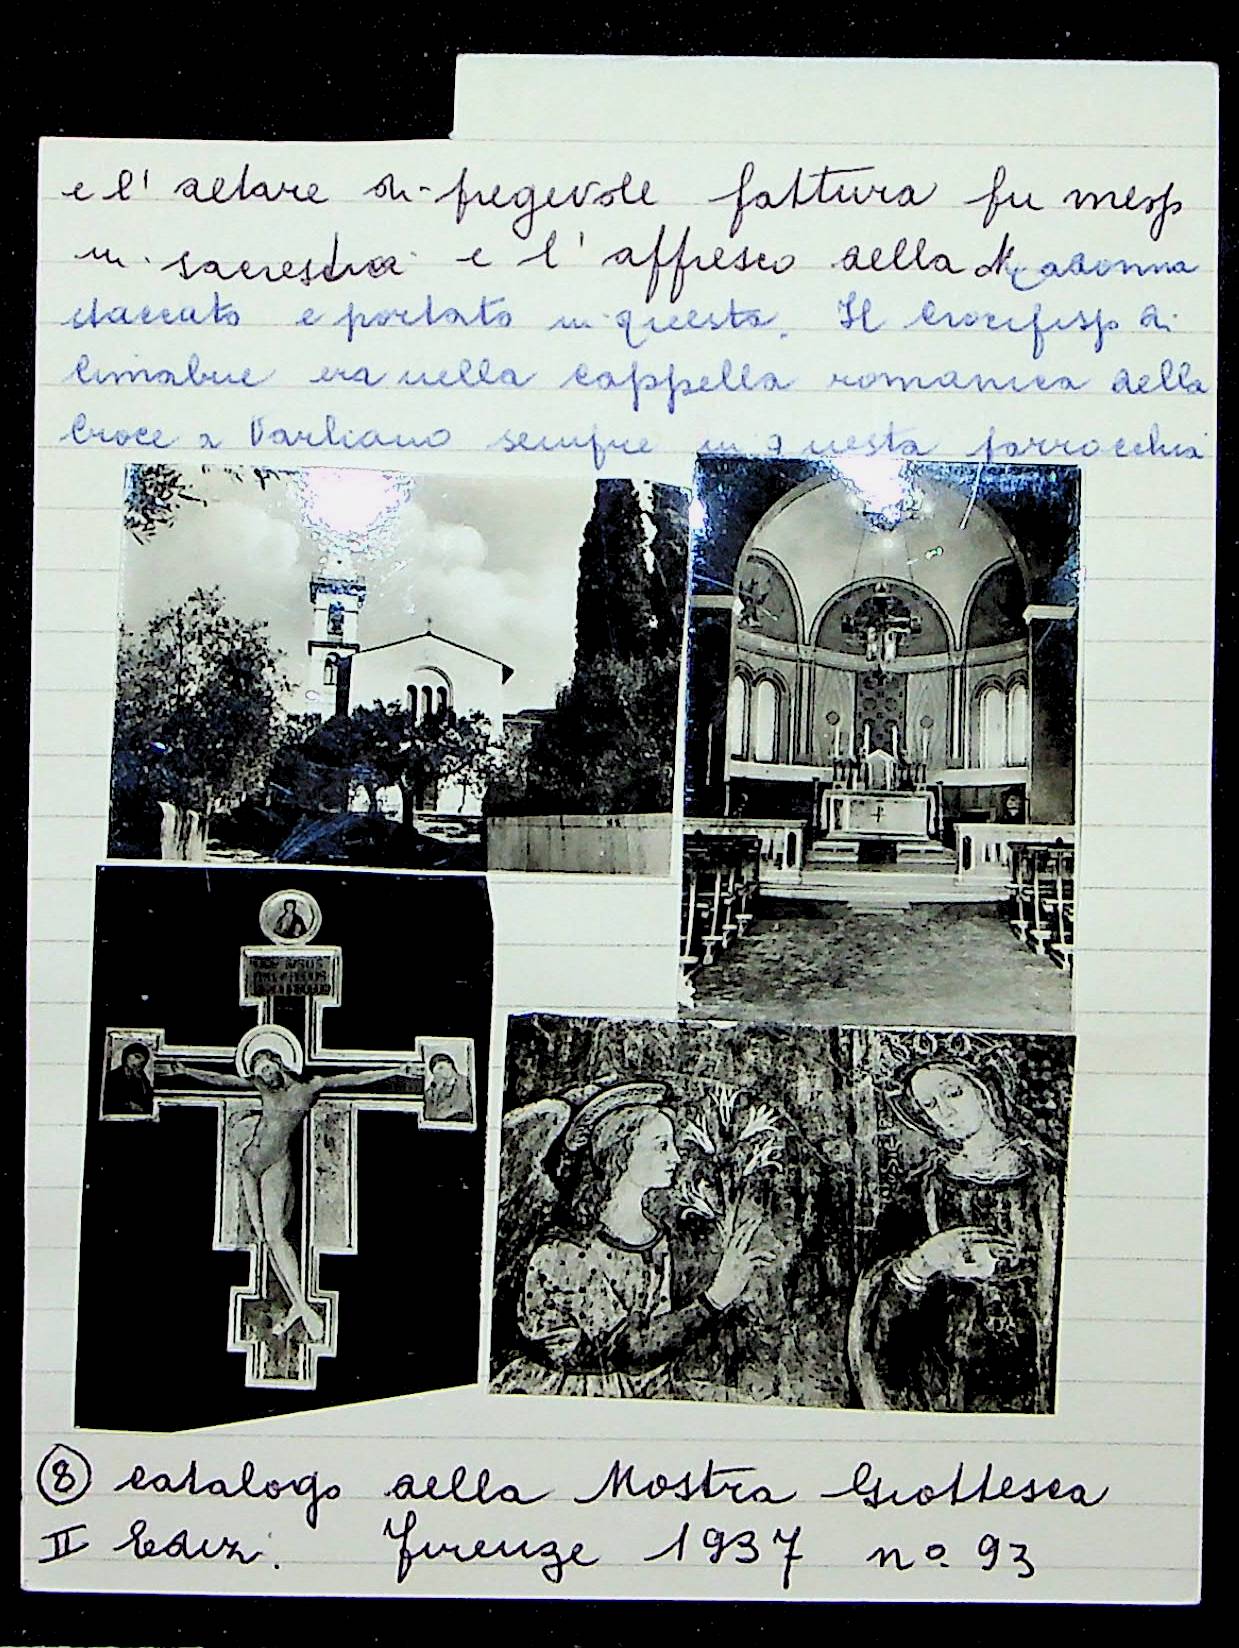 e l' altare di pregevole fattura fu messo
in sacrestia e l' affresco della Madonna
staccato e portato in questa. Il Crocifisso di
Cimabue era nella cappella romanica della
Croce a Varliano sempre in questa parrocchia
⑧ catalogo della Mostra Giottesca
II Ediz. Firenze 1937 nº 93